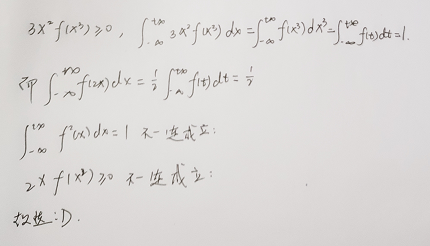 3x²f(x³)≥0, ∫_{-∞}^{+∞} 3x²f(x³)dx=∫_{-∞}^{+∞} f(x³)dx³=∫_{-∞}^{+∞} f(t)dt=1.
而 ∫_{-∞}^{+∞} f(2x)dx=½∫_{-∞}^{+∞} f(t)dt=½
∫_{-∞}^{+∞} f²(x)dx=1 不一定成立;
2xf(x²)≥0 不一定成立;
故选:D.